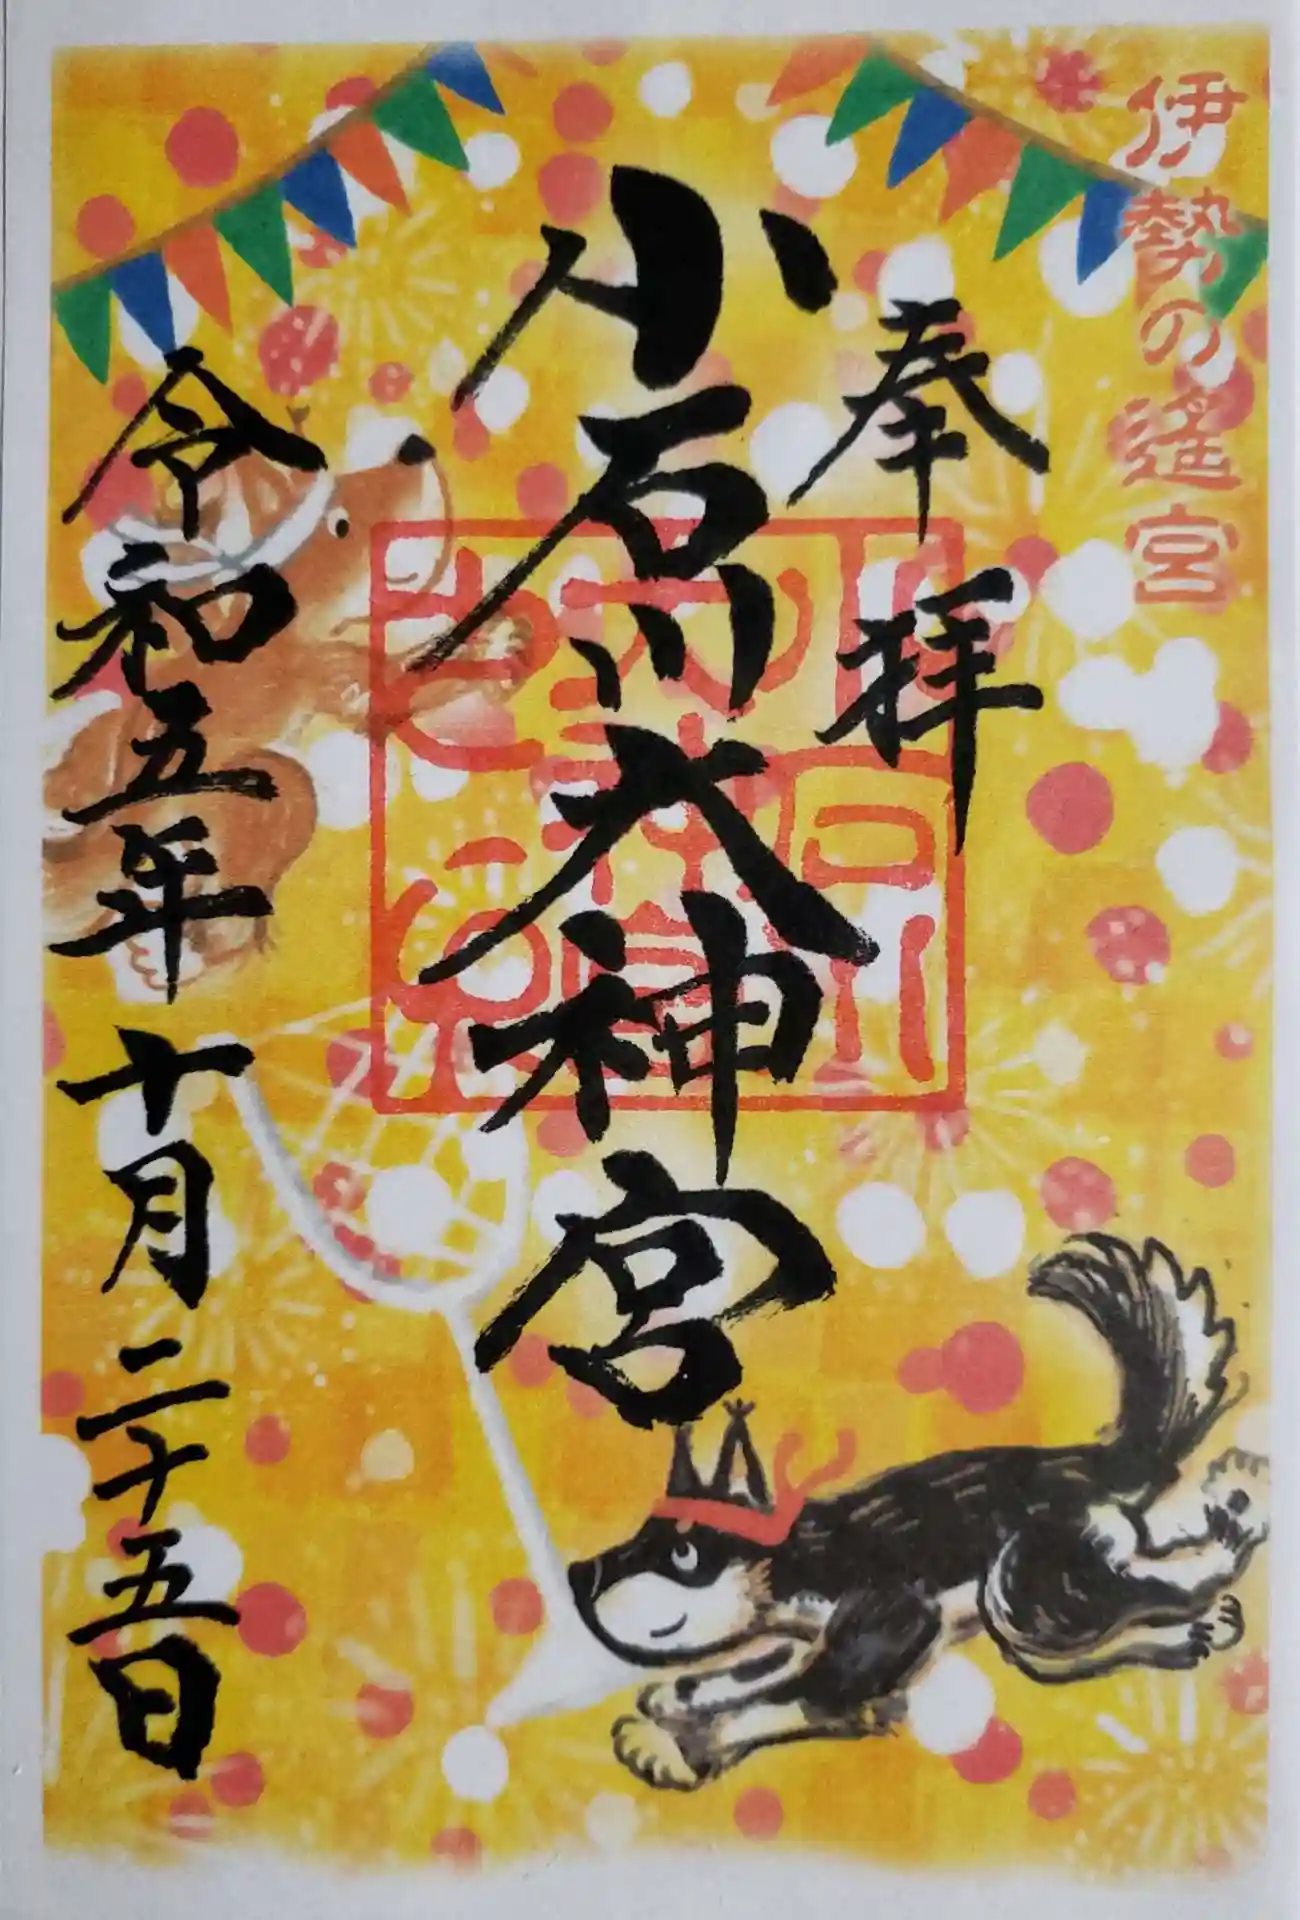 伊勢の遙宮
奉拝
小石川大神宮
小石川
大神宮
之印
令和五年十月二十五日